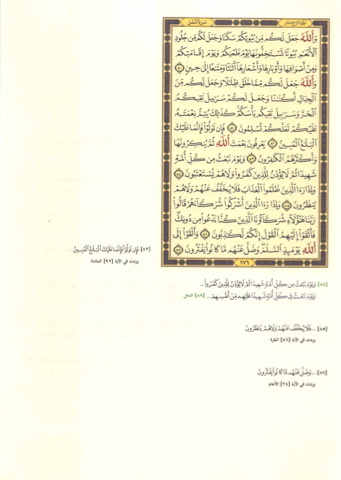 الجزء الرابع عشر سورة النحل
وَٱللَّهُ جَعَلَ لَكُم مِّنۢ بُيُوتِكُمْ سَكَنًا وَجَعَلَ لَكُم مِّن جُلُودِ
ٱلْأَنْعَٰمِ بُيُوتًا تَسْتَخِفُّونَهَا يَوْمَ ظَعْنِكُمْ وَيَوْمَ إِقَامَتِكُمْ
وَمِنْ أَصْوَافِهَا وَأَوْبَارِهَا وَأَشْعَارِهَآ أَثَٰثًا وَمَتَٰعًا إِلَىٰ حِينٍ ٨٠
وَٱللَّهُ جَعَلَ لَكُم مِّمَّا خَلَقَ ظِلَٰلًا وَجَعَلَ لَكُم مِّنَ
ٱلْجِبَالِ أَكْنَٰنًا وَجَعَلَ لَكُمْ سَرَٰبِيلَ تَقِيكُمُ
ٱلْحَرَّ وَسَرَٰبِيلَ تَقِيكُم بَأْسَكُمْ كَذَٰلِكَ يُتِمُّ نِعْمَتَهُۥ
عَلَيْكُمْ لَعَلَّكُمْ تُسْلِمُونَ ٨١ فَإِن تَوَلَّوْا۟ فَإِنَّمَا عَلَيْكَ
ٱلْبَلَٰغُ ٱلْمُبِينُ ٨٢ يَعْرِفُونَ نِعْمَتَ ٱللَّهِ ثُمَّ يُنكِرُونَهَا
وَأَكْثَرُهُمُ ٱلْكَٰفِرُونَ ٨٣ وَيَوْمَ نَبْعَثُ مِن كُلِّ أُمَّةٍ
شَهِيدًا ثُمَّ لَا يُؤْذَنُ لِلَّذِينَ كَفَرُوا۟ وَلَا هُمْ يُسْتَعْتَبُونَ ٨٤
وَإِذَا رَءَا ٱلَّذِينَ ظَلَمُوا۟ ٱلْعَذَابَ فَلَا يُخَفَّفُ عَنْهُمْ وَلَا هُمْ
يُنظَرُونَ ٨٥ وَإِذَا رَءَا ٱلَّذِينَ أَشْرَكُوا۟ شُرَكَآءَهُمْ قَالُوا۟
رَبَّنَا هَٰٓؤُلَآءِ شُرَكَآؤُنَا ٱلَّذِينَ كُنَّا نَدْعُوا۟ مِن دُونِكَ
فَأَلْقَوْا۟ إِلَيْهِمُ ٱلْقَوْلَ إِنَّكُمْ لَكَٰذِبُونَ ٨٦ وَأَلْقَوْا۟ إِلَى
ٱللَّهِ يَوْمَئِذٍ ٱلسَّلَمَ وَضَلَّ عَنْهُم مَّا كَانُوا۟ يَفْتَرُونَ ٨٧
٢٧٦
[٨٢] فَإِن تَوَلَّوْا۟ فَإِنَّمَا عَلَيْكَ ٱلْبَلَٰغُ ٱلْمُبِينُ
وردت في الآية [٩٢] المائدة
[٨٤] وَيَوْمَ نَبْعَثُ مِن كُلِّ أُمَّةٍ شَهِيدًا ثُمَّ لَا يُؤْذَنُ لِلَّذِينَ كَفَرُوا۟...
وَيَوْمَ نَبْعَثُ فِى كُلِّ أُمَّةٍ شَهِيدًا عَلَيْهِم مِّنْ أَنفُسِهِمْ... [٨٩] النحل
[٨٥] ...فَلَا يُخَفَّفُ عَنْهُمْ وَلَا هُمْ يُنظَرُونَ
وردت في الآية [٨٦] البقرة
[٨٧] ...وَضَلَّ عَنْهُم مَّا كَانُوا۟ يَفْتَرُونَ
وردت في الآية [٢٤] الأنعام